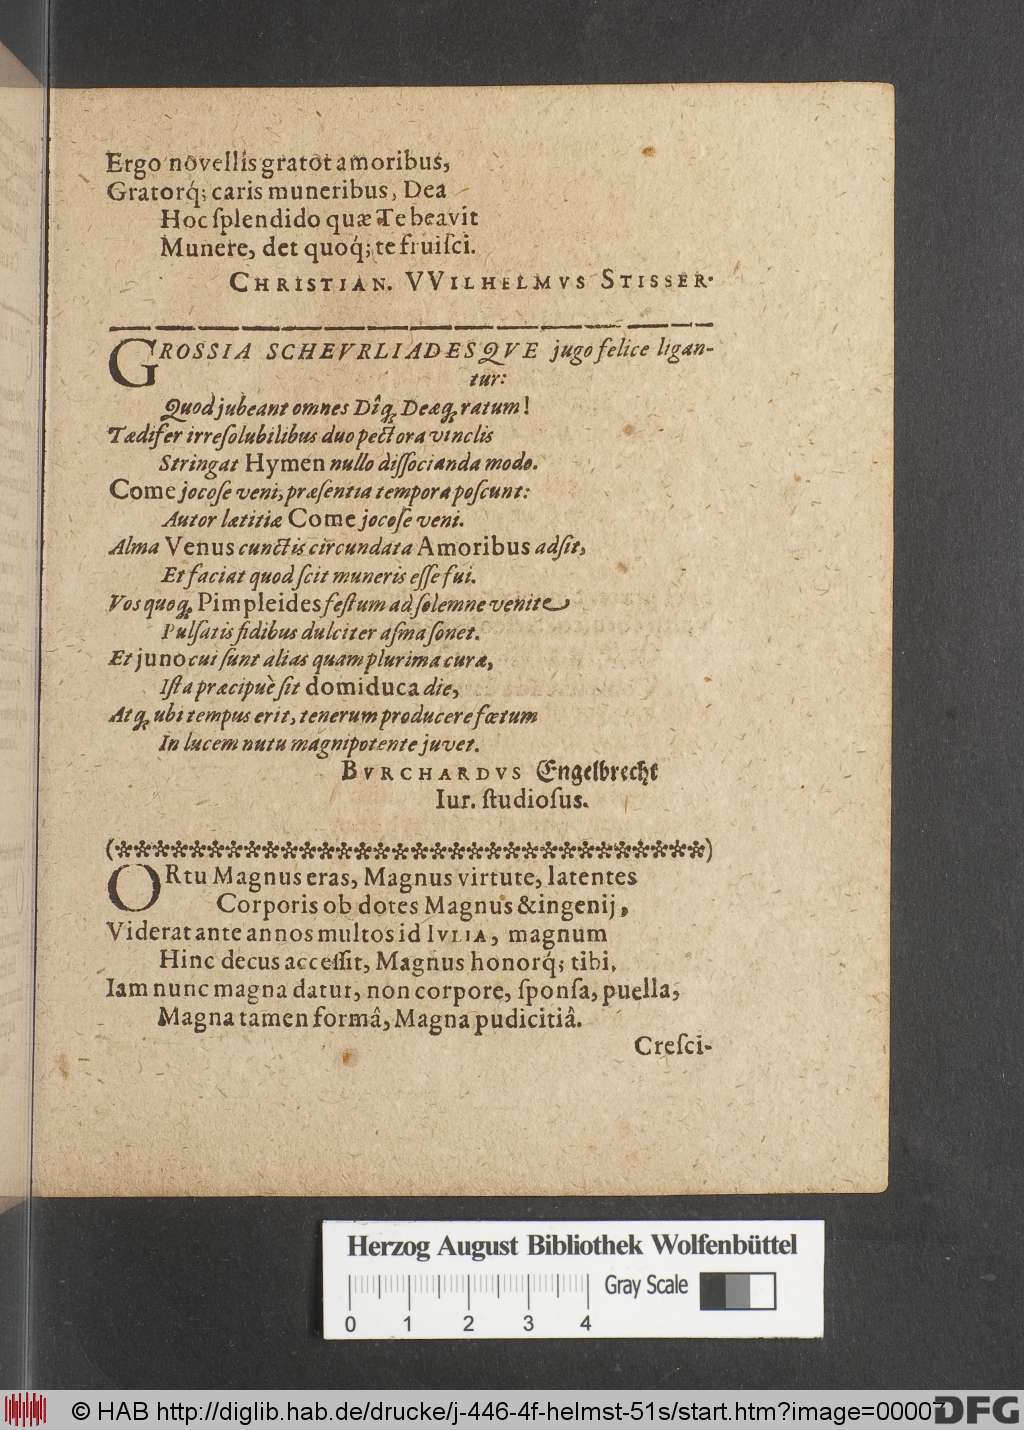 Ergo novellis grator amoribus,
Gratorq́; caris muneribus, Dea
Hoc ſplendido quæ Te beavit
Munere, det quoq́; te fruiſci.
CHRISTIAN. VVILHELMVS STISSER.
GROSSIA SCHEVRLIADESQVE jugo felice ligan-
tur:
Quod jubeant omnes Dîq; Deæq; ratum!
Tædifer irreſolubilibus duo pectora vinclis
Stringat Hymen nullo diſſocianda modo.
Come jocoſe veni, præſentia tempora poſcunt:
Autor lætitiæ Come jocoſe veni.
Alma Venus cunctis circundata Amoribus adſit,
Et faciat quod ſcit muneris eſſe ſui.
Vos quoq; Pimpleides feſtum ad ſolemne venite
Pulſatis fidibus dulciter aſma ſonet.
Et juno cui ſunt alias quam plurima curæ,
Iſta præcipuè ſit domiduca die,
Atq; ubi tempus erit, tenerum producere fœtum
In lucem nutu magnipotente juvet.
BVRCHARDVS Engelbrecht
Iur. ſtudioſus.
ORtu Magnus eras, Magnus virtute, latentes
Corporis ob dotes Magnus & ingenij,
Viderat ante annos multos id IVLIA, magnum
Hinc decus acceſſit, Magnus honorq́; tibi,
Iam nunc magna datur, non corpore, ſponſa, puella,
Magna tamen formâ, Magna pudicitiâ.
Creſci-
Herzog August Bibliothek Wolfenbüttel
Gray Scale
0 1 2 3 4
© HAB http://diglib.hab.de/drucke/j-446-4f-helmst-51s/start.htm?image=00007
DFG